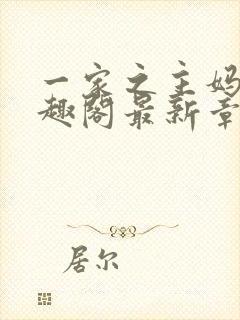 一家之主妈
趣阁最新章
居尔